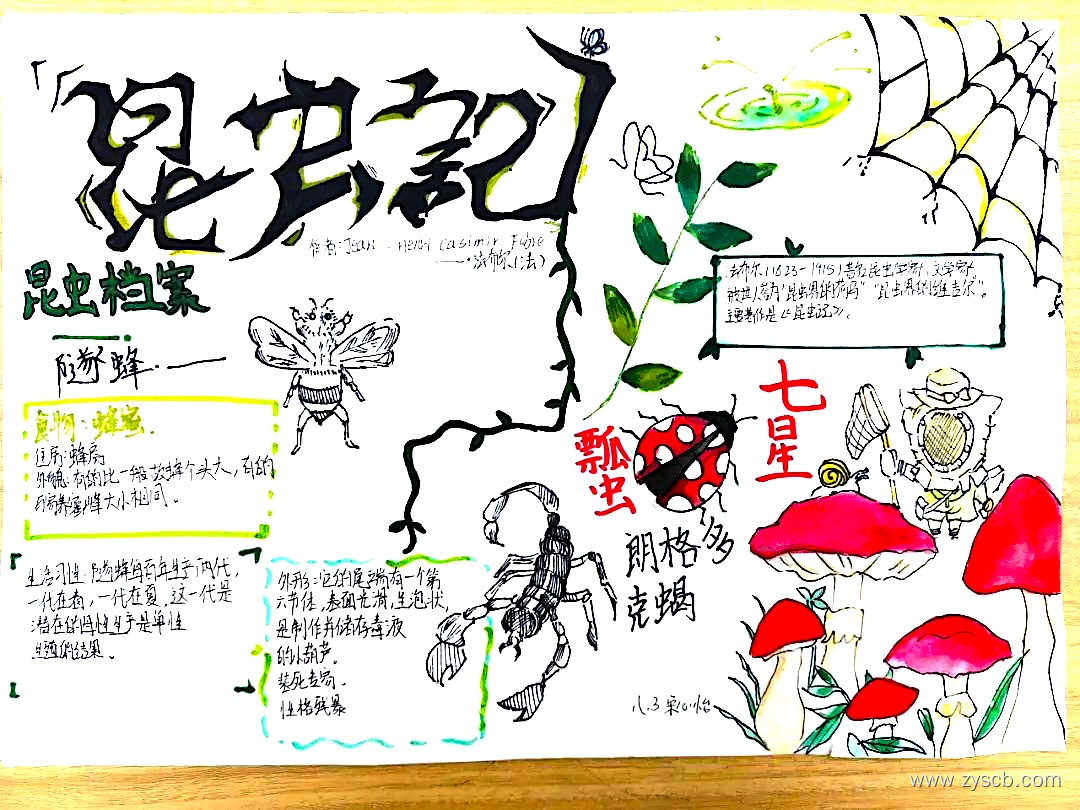 昆虫記
作者:Jean-Henri Casimir Fabre
——法布尔(法)
昆虫档案
隧蜂.——
食物:蜂蜜.
住房:蜂房
外貌:有的比一般蜜蜂个头大,有的
与家养蜜蜂大小相同。
生活习性:隧蜂每年生产两代,
一代在春,一代在夏,这一代是
潜在的母性生产是单性
主题的结果。
外形:它的尾端有一个第
六节体,表面光滑,呈泡状,
是制作并储存毒液
的小葫芦。
装死专家.
性格残暴
法布尔(1823-1915)著名昆虫学家,文学家。
被世人称为"昆虫界的荷马""昆虫界的维吉尔"。
主要著作是《昆虫记》。
七星
瓢虫
朗格多
克蝎
八.3
www.zyscb.com